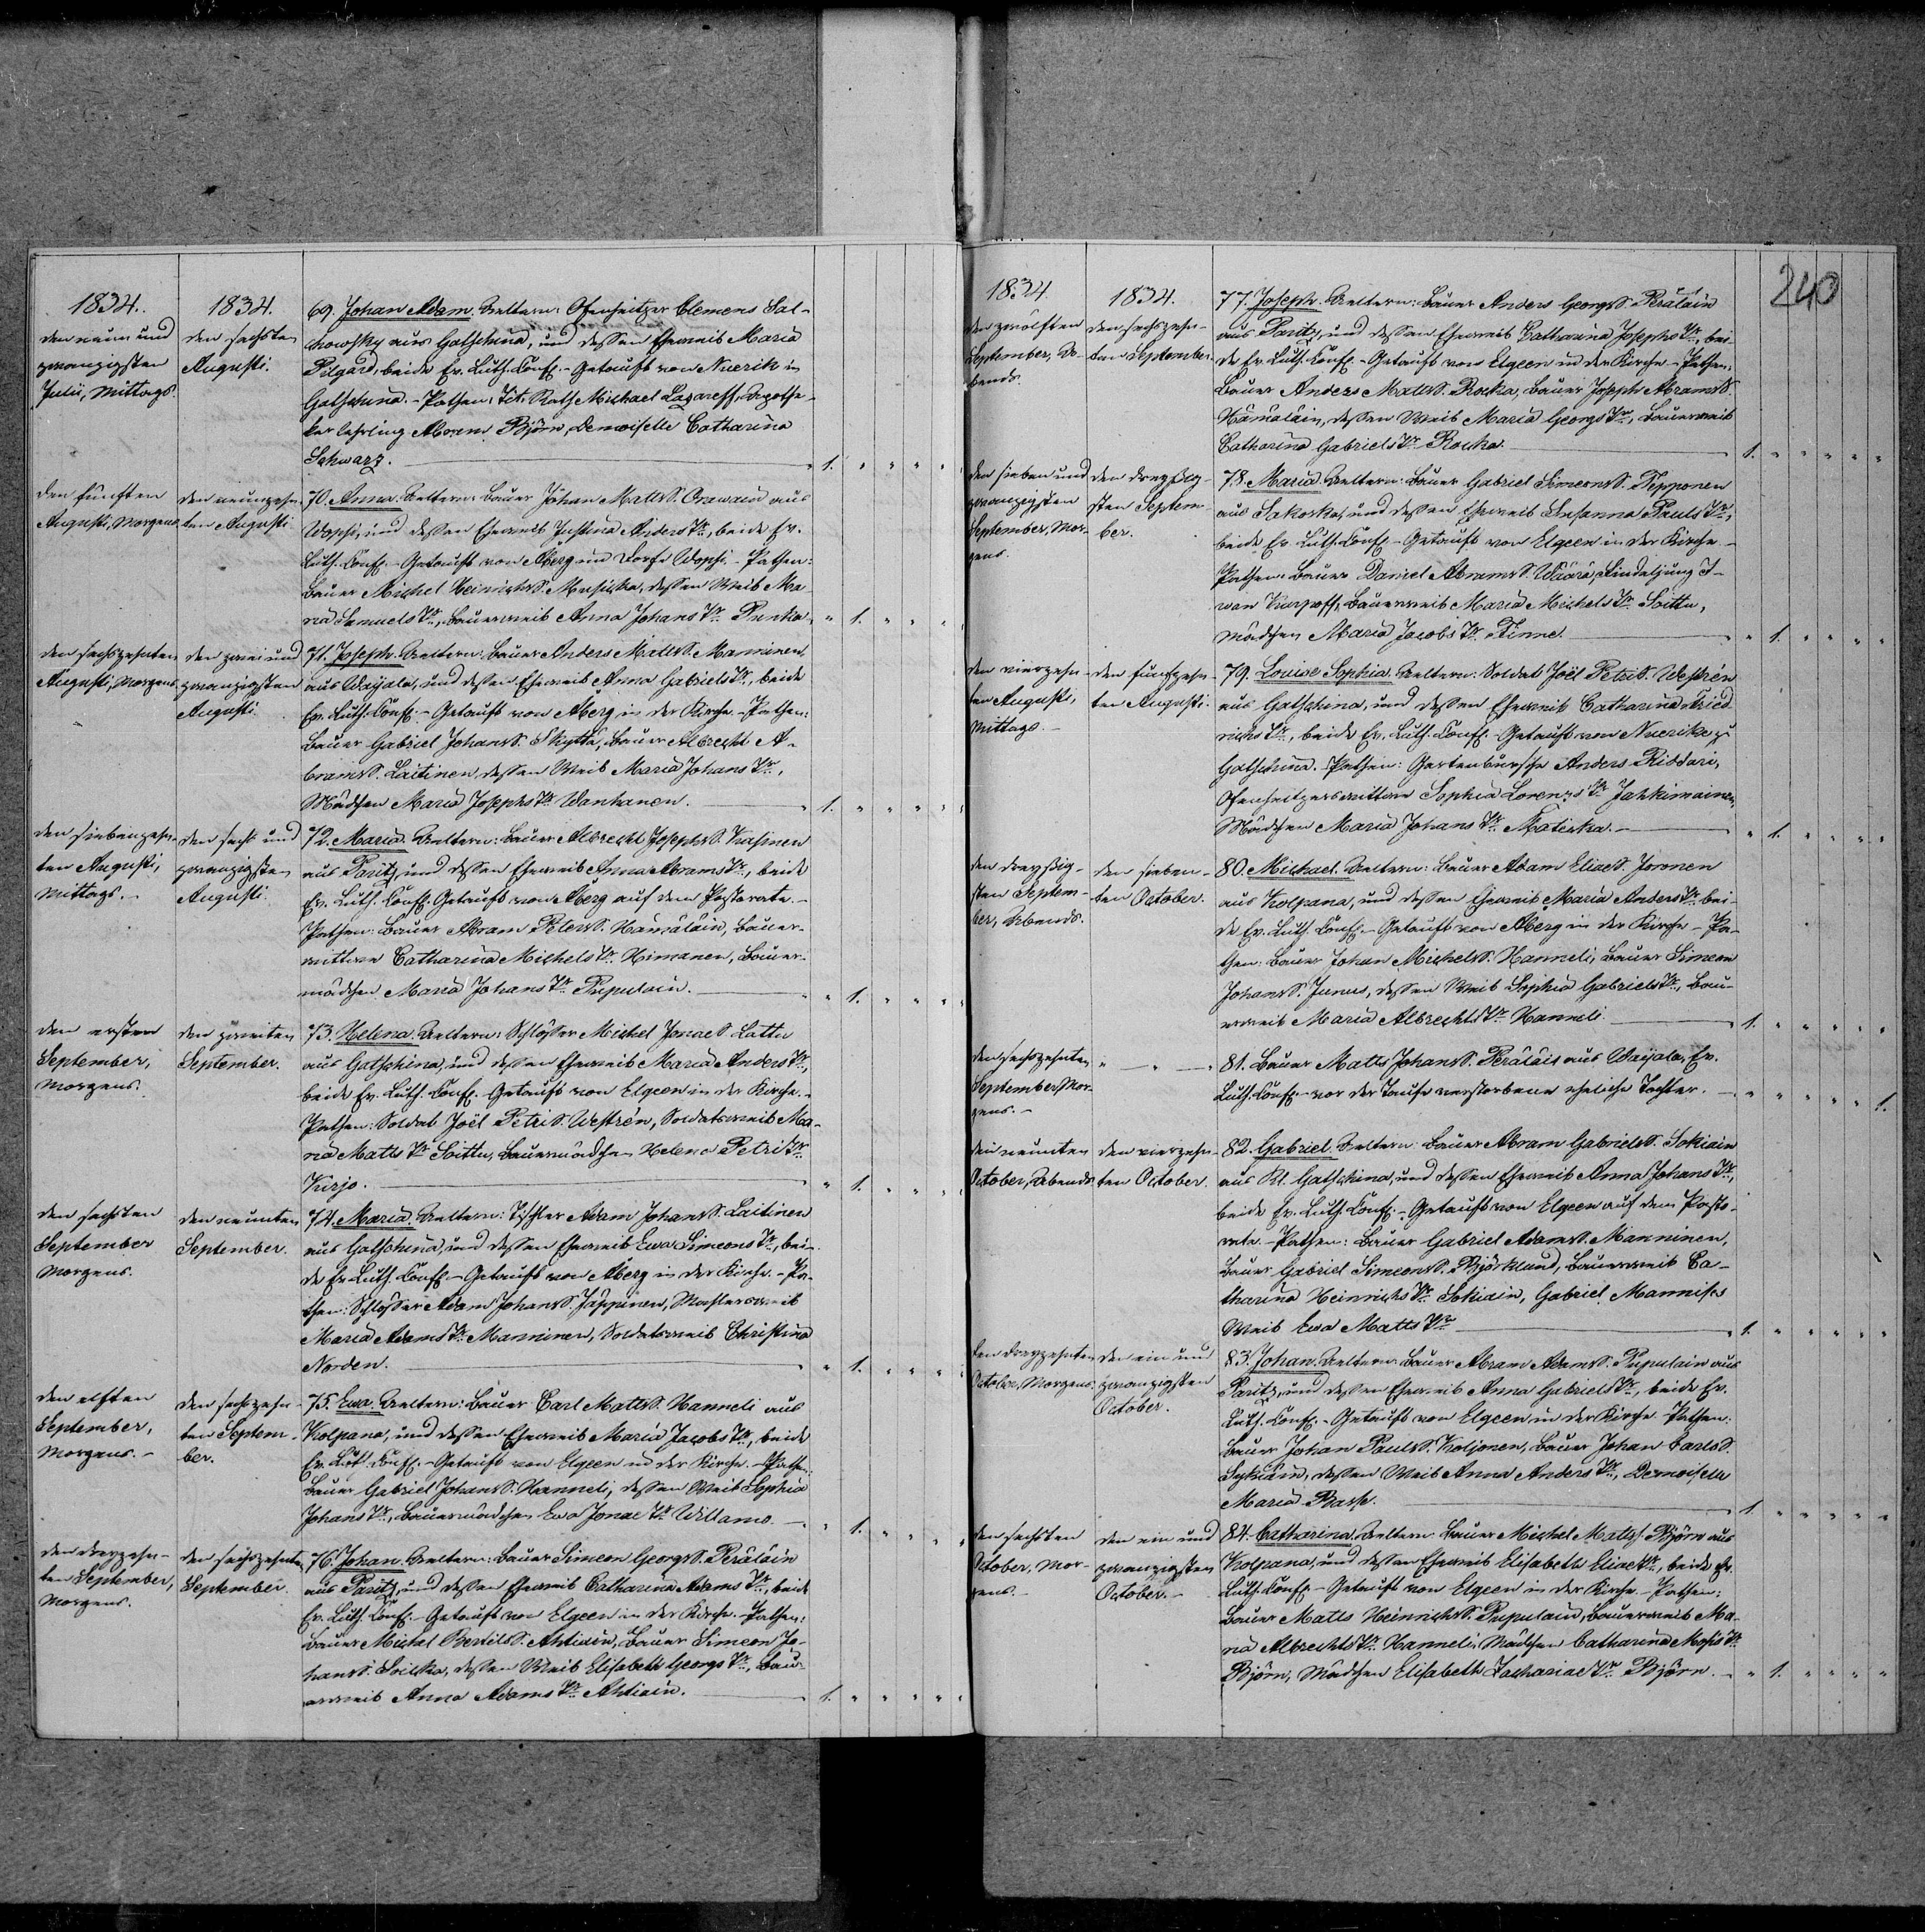 1834.
1834.
69. Johan Adam. Aeltern: Ofenheitzer Clemens Sal-
den neun und
zwanzigsten
Julii, Mittags.
den sechsten
Augusti.
howsky aus Gatschina, und dessen Eheweib Maria
Pilgard, beide Ev. Luth. Conf. - Getauft von Nuerik in
Gatschina. - Pathen: Tit. Rath Michael Lazareff, Apothe-
ker lehrling Abram Björn, Demoiselle Catharina
Schwarz. 1.
den fünften
Augusti, Morgens.
den neunzehn-
ten Augusti.
70. Anna. Aeltern: Bauer Johan Matts S. Orawain aus
Wopsi, und dessen Eheweib Justina Anders Tr, beide Ev.
Luth. Conf. - Getauft von Åberg im Dorfe Wopsi. - Pathen:
Bauer Michel Heinrichs S. Musikka, dessen Weib Ma-
ria Samuels Tr, Bauerweib Anna Johans Tr Punka. 1.
den sechszehnten
Augusti, Morgens.
den zwei und
zwanzigsten
Augusti.
71. Joseph. Aeltern: Bauer Anders Matts S. Manninen
aus Waijala, und dessen Eheweib Anna Gabriels Tr, beide
Ev. Luth. Conf. - Getauft von Åberg in der Kirche. - Pathen:
Bauer Gabriel Johans S. Skyttä, Bauer Albrecht A-
brams S. Laitinen, dessen Weib Maria Johans Tr,
Mädchen Maria Josephs Tr Wanhanen. 1.
den siebenzehn-
ten Augusti,
Mittags. -
den sechs und
zwanzigsten
Augusti.
72. Maria. Aeltern: Bauer Albrecht Josephs S. Kasinen
aus Paritz, und dessen Eheweib Anna Abrams Tr, beide
Ev. Luth. Conf. Getauft von Åberg auf dem Pastorate. -
Pathen: Bauer Abram Peters S. Hämäläin, Bauer-
wittwe Catharina Michels Tr Himanen, Bauer-
mädchen Maria Johans Tr Pupulain. 1.
den ersten
September,
Morgens.
den zweiten
September.
73. Helena. Aeltern: Schlösser Michel Jonae S. Lattu
aus Gatschina, und dessen Eheweib Maria Anders Tr,
beide Ev. Luth. Conf. - Getauft von Elgeen in der Kirche. -
Pathen: Soldat Joël Petri S. Westrén, Soldatsweib Ma-
ria Matts Tr Soittu, Bauermädchen Helena Petri Tr
Kirjo. 1.
den sechsten
September
Morgens.
den neunten
September.
74. Maria. Aeltern: Tischler Adam Johans S. Laitinen
aus Gatschina, und dessen Eheweib Ewa Simeons Tr, bei-
de Ev. Luth. Conf. - Getauft von Åberg in der Kirche. - Pa-
then: Schlösser Adam Johans S. Jäppinen, Malersweib
Maria Adams Tr Manninen, Soldatsweib Christina
Norden. 1.
den elften
September,
Morgens. -
den sechszehn-
ten Septem-
ber.
75. Ewa. Aeltern: Bauer Carl Matts S. Hanneli aus
Kolpana, und dessen Eheweib Maria Jacobs Tr, beide
Ev. Luth. Conf. - Getauft von Elgeen in der Kirche. - Pathen:
Bauer Gabriel Johans S. Hanneli, dessen Weib Sophia
Johans Tr, Bauermädchen Ewa Jonae Tr Willamo. 1.
den dreyzehn-
ten September,
Morgens.
den sechszehnten
September.
76. Johan. Aeltern: Bauer Simeon Georgs S. Peräläin
aus Paritz, und dessen Eheweib Catharina Adams Tr, beide
Ev. Luth. Conf. - Getauft von Elgeen in der Kirche. - Pathen:
Bauer Michel Bertils S. Ahtiain, Bauer Simeon Jo-
hans S. Soikka, dessen Weib Elisabeth Georgs Tr, Bau-
erweib Anna Adams Tr Ahtiain. 1.
240
1834.
1834.
den zwölften
September, A-
bends.
den sechszehn-
ten September.
77. Joseph. Aeltern: Bauer Anders Georgs S. Peräläin
aus Paritz, und dessen Eheweib Catharina Josephs Tr, bei-
de Ev. Luth. Conf. - Getauft von Elgeen in der Kirche - Pathen:
Bauer Anders Matts S. Rocka, Bauer Joseph Abrams S.
Hämäläin, dessen Weib Maria Georgs Tr, Bauerweib
Catharina Gabriels Tr Rocka. 1.
den sieben und
zwanzigsten
September, Mor-
gens.
den dreyßig-
sten Septem-
ber.
78. Maria. Aeltern: Bauer Gabriel Simeons S. Tepponen
aus Sakorka, und dessen Eheweib Susanna Pauls Tr,
beide Ev. Luth. Conf. - Getauft von Elgeen in der Kirche -
Pathen: Bauer Daniel Abrams S. Wäärä, Findeljung I-
wan Karpoff, Bauerweib Maria Michels Tr Soittu,
Mädchen Maria Jacobs Tr Finne. 1.
den vierzehn-
ten Augusti,
Mittags. -
den fünfzehn-
ten Augusti.
79. Louise Sophia. Aeltern: Soldat Joël Petri S. Westrén
aus Gatschina, und dessen Eheweib Catharina Fried-
richs Tr, beide Ev. Luth. Conf. - Getauft von Nuerik zu
Gatschina. Pathen: Gartenbursche Anders Riddari,
Ofenheitzerswittwe Sophia Lorenzs Tr Jahkimainen,
Mädchen Maria Johans Tr Matiska. - 1.
den dreyßig-
sten Septem-
ber, Abends.
den sieben-
ten October.
80. Michael. Aeltern: Bauer Adam Eliae S. Joronen
aus Kolpana, und dessen Eheweib Maria Anders Tr, bei-
de Ev. Luth. Conf. - Getauft von Åberg in der Kirche - Pa-
then: Bauer Johan Michels S. Hanneli, Bauer Simeon
Johans S. Junus, dessen Weib Sophia Gabriels Tr, Bau-
erweib Maria Albrechts Tr Hanneli. 1.
den sechszehnten
September, Mor-
gens. -
81. Bauer Matts Johans S. Peräläis aus Waijala, Ev.
Luth. Conf. - vor der Taufe verstorbene eheliche Tochter. 1.
den neunten
October, Abends.
den vierzehn-
ten October.
82. Gabriel. Aeltern: Bauer Abram Gabriels S. Sokiain
aus Kl. Gatschina, und dessen Eheweib Anna Johans Tr,
beide Ev. Luth. Conf. - Getauft von Elgeen auf dem Pasto-
rate. - Pathen: Bauer Gabriel Adams S. Manninen,
Bauer Gabriel Simeons S. Björklund, Bauerweib Ca-
tharina Heinrichs Tr Sokiain, Gabriel Mannises
Weib Ewa Matts Tr 1.
den dreyzehnten
October, Morgens.
den ein und
zwanzigsten
October.
83. Johan. Aeltern: Bauer Abram Adams S. Pupulain aus
Paritz, und dessen Eheweib Anna Gabriels Tr, beide Ev.
Luth. Conf. - Getauft von Elgeen in der Kirche - Pathen:
Bauer Johan Pauls S. Koljonen, Bauer Johan Carls S.
Sykiäin, dessen Weib Anna Anders Tr, Demoiselle
Maria Basse. 1.
den sechsten
October, Mor-
gens. -
den ein und
zwanzigsten
October. -
84. Catharina. Aeltern: Bauer Michel Matts S. Björn aus
Kolpana, und dessen Eheweib Elisabeth Eliae Tr, beide Ev.
Luth. Conf. - Getauft von Elgeen in der Kirche. - Pathen:
Bauer Matts Heinrichs S. Pupulain, Bauerweib Ma-
ria Albrechts Tr Hanneli, Mädchen Catharina Mosis Tr
Björn, Mädchen Elisabeth Zachariae Tr Björn. 1.